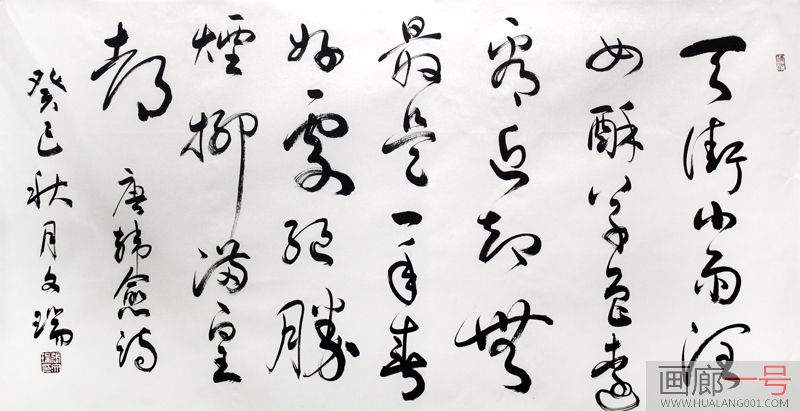 天街小雨润
如酥草色遥
看近却無
最是一年春
好處絕勝
煙柳满皇
都
唐韩愈诗
癸巳秋月文瑞
画廊一号
WWW.HUALANG001.COM